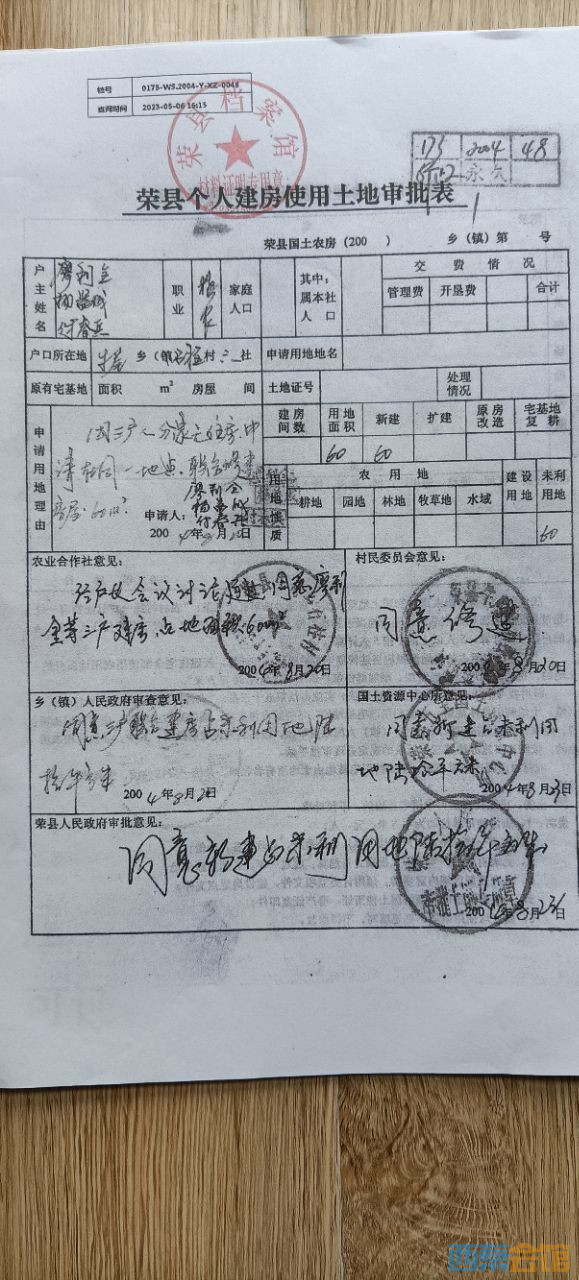 档号 0175-WS.2004-Y-XZ-0048
查阅时间 2023-05-06 16:15
荣县档案馆
材料证明专用章
173 2004 48
永久
荣县个人建房使用土地审批表
荣县国土农房(200 ) 乡(镇)第 号
户主姓名 廖利全
职业 务农 家庭人口 其中:属本社人口 交费情况
管理费 开垦费 合计
户口所在地 乡(镇) 村 社 申请用地地名
原有宅基地 面积 m² 房屋 间 土地证号 处理情况
申请用地理由
建房间数 用地面积 新建 扩建 原房改造 宅基地复耕
60 60
因三户人分家无住房,申
请在同一地点,联合修建
房屋 60m²
申请人: 廖利全
2004年8月20日
用地性质 农用地 建设用地 未利用地
耕地 园地 林地 牧草地 水域
60
农业合作社意见:
经户代会议讨论通过同意廖利
全等三户建房占地面积60m²
2004年8月20日
村民委员会意见:
同意修建
2004年8月20日
乡(镇)人民政府审查意见:
同意三户联合建房占未利用地陆
拾平方米 2004年8月2日
国土资源中心房意见:
同意新建占未利用
地陆拾平方米
2004年8月23日
荣县人民政府审批意见:
同意新建占未利用地陆拾平方米
2004年8月23日